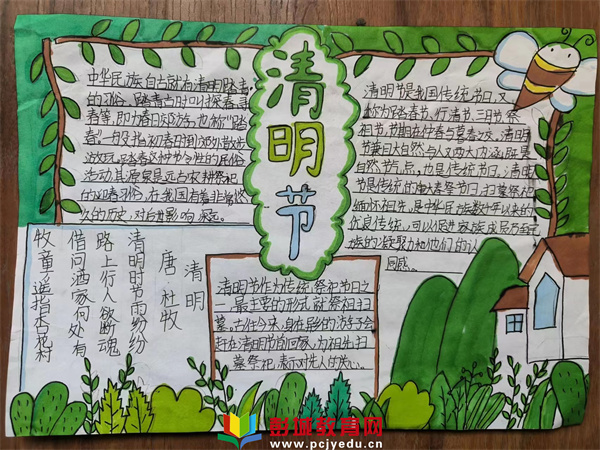 清明节
中华民族自古就有清明踏青
的习俗。踏青古时叫探春、寻
春等,即为春日郊游,也称“踏
春”。一般指初春时到郊外散步
游玩。踏青这种节令性的民俗
活动,其源泉是远古农耕祭祀
的迎春习俗,在我国有着非常悠
久的历史,对后世影响深远。
清明节是我国传统节日,又
称为踏青节、行清节、三月节、祭
祖节,节期在仲春与暮春之交。清明
节兼具自然与人文两大内涵,既是
自然节气点,也是传统节日,清明
节是传统的重大春祭节日,扫墓祭祀、
缅怀祖先,是中华民族数千年以来的
优良传统,可以促进家族成员乃至民
族的凝聚力和他们的认
同感。
清明
唐 杜牧
清明时节雨纷纷
路上行人欲断魂
借问酒家何处有
牧童遥指杏花村
清明节作为传统祭祀节日之
一,最主要的形式就祭祖扫
墓。古往今来,身在异乡的游子会
赶在清明节前回家,为祖先扫
墓祭祀,表示对先人的关心。
彭城教育网
www.pcjyedu.cn